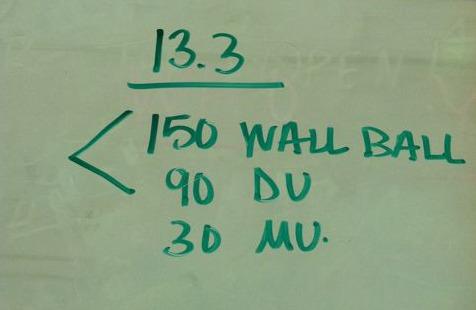 13.3
< 150 WALL BALL
90 DU
30 MU.